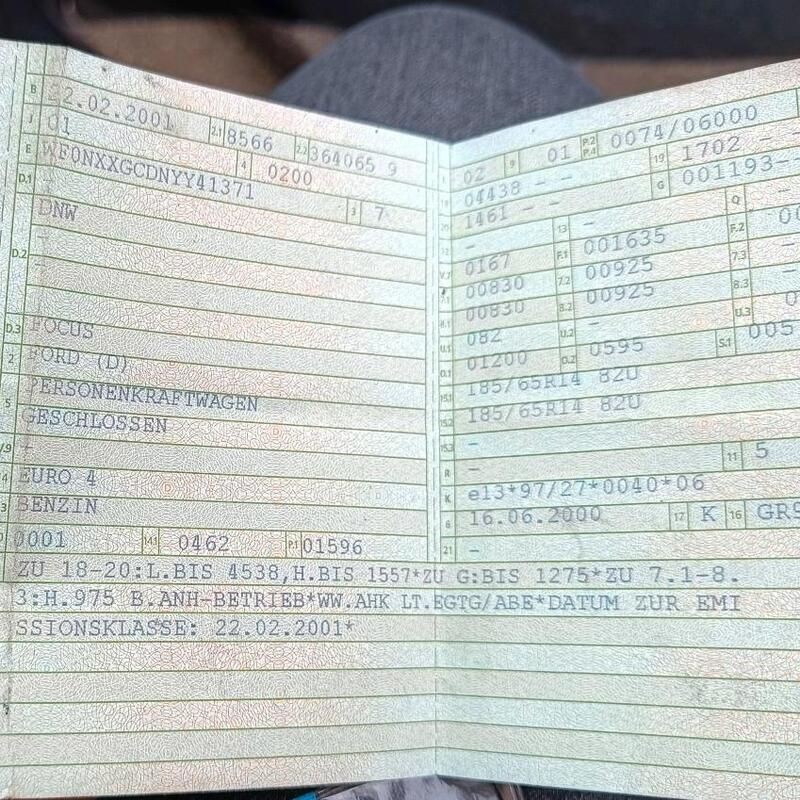 B 22.02.2001 2.1 8566 2.2 364065 9
J 01 4 0200
E WF0NXXGCDNYY41371 3 7
D.1 DNW
-
D.2 -
D.3 FOCUS
2 FORD (D)
5 PERSONENKRAFTWAGEN
GESCHLOSSEN
V.9 -
14 EURO 4
P.3 BENZIN
0001 14.1 0462 P.1 01596
L 02 9 01 P.2 P.4 0074/06000
18 04438 - - 19 1702 - -
20 1461 - - G 001193--
12 - 13 - Q -
V.7 0167 F.1 001635 F.2
7.1 00830 7.2 00925 7.3 -
8.1 00830 8.2 00925 8.3 -
U.1 082 U.2 - U.3
O.1 01200 O.2 0595 S.1 005
15.1 185/65R14 82U
15.2 185/65R14 82U
15.3 -
R - 11 5
K e13*97/27*0040*06
6 16.06.2000 17 K 16
21 -
ZU 18-20:L.BIS 4538,H.BIS 1557*ZU G:BIS 1275*ZU 7.1-8.
3:H.975 B.ANH-BETRIEB*WW.AHK LT.EGTG/ABE*DATUM ZUR EMI
SSIONSKLASSE: 22.02.2001*